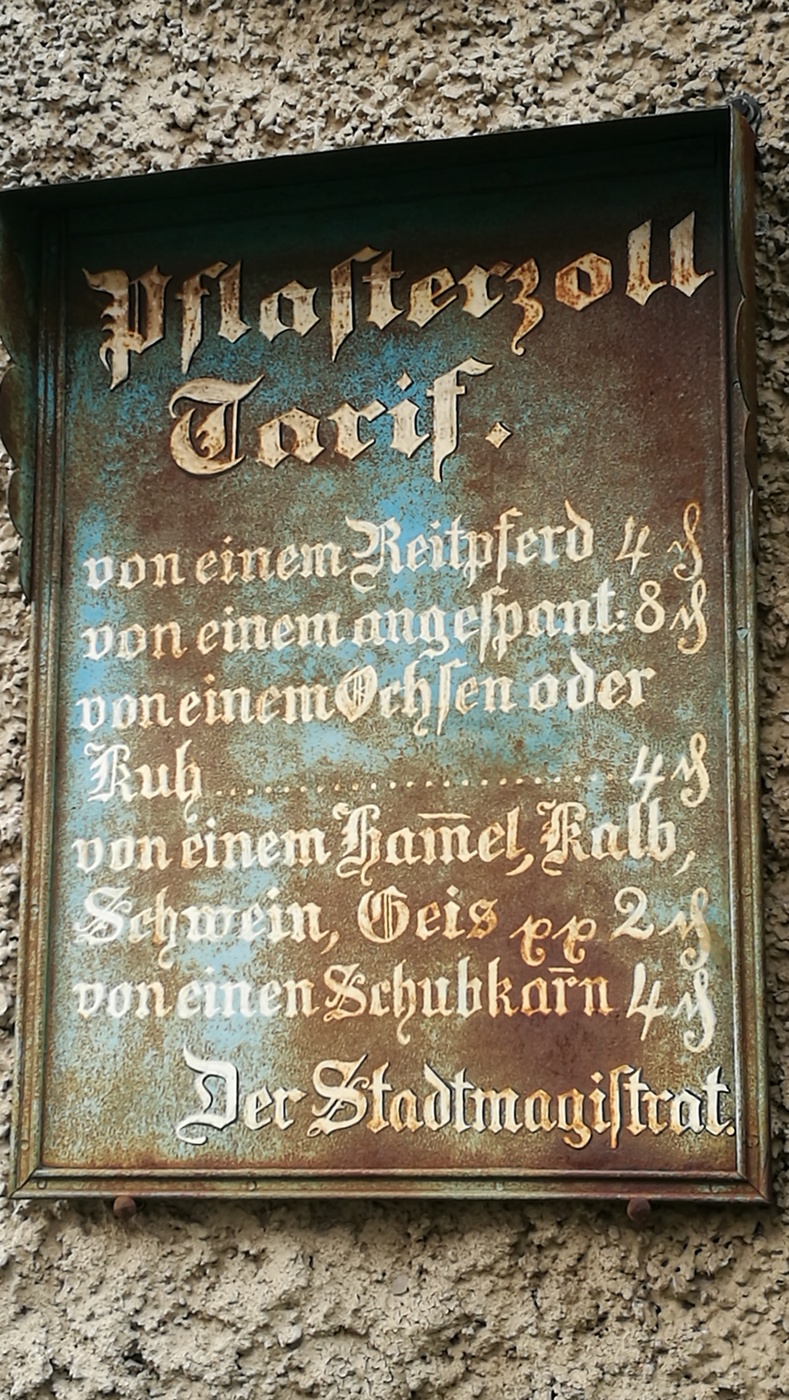 Pflaſterzoll
Tarif.
von einem Reitpferd 4 ₰
von einem angeſpant: 8 ₰
von einem Ochſen oder
Kuh ........................ 4 ₰
von einem Ham̅el, Kalb,
Schwein, Geis xx 2 ₰
von einen Schubkar̅n 4 ₰
Der Stadtmagiſtrat.